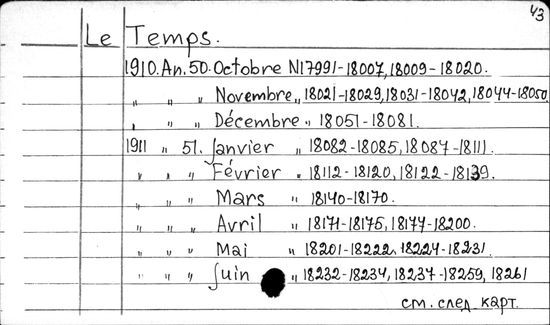 43
Le Temps.
1910. An. 50. Octobre N17991-18007, 18009-18020.
„ „ „ Novembre „ 18021-18029, 18031-18042, 18044-18050
„ „ „ Décembre „ 18051-18081.
1911 „ 51. Janvier „ 18082-18085, 18087-18111.
„ „ „ Février „ 18112-18120, 18122-18139.
„ „ „ Mars „ 18140-18170.
„ „ „ Avril „ 18171-18175, 18177-18200.
„ „ „ Mai „ 18201-18222, 18224-18231.
„ „ „ Juin „ 18232-18234, 18237-18259, 18261
см. след. карт.